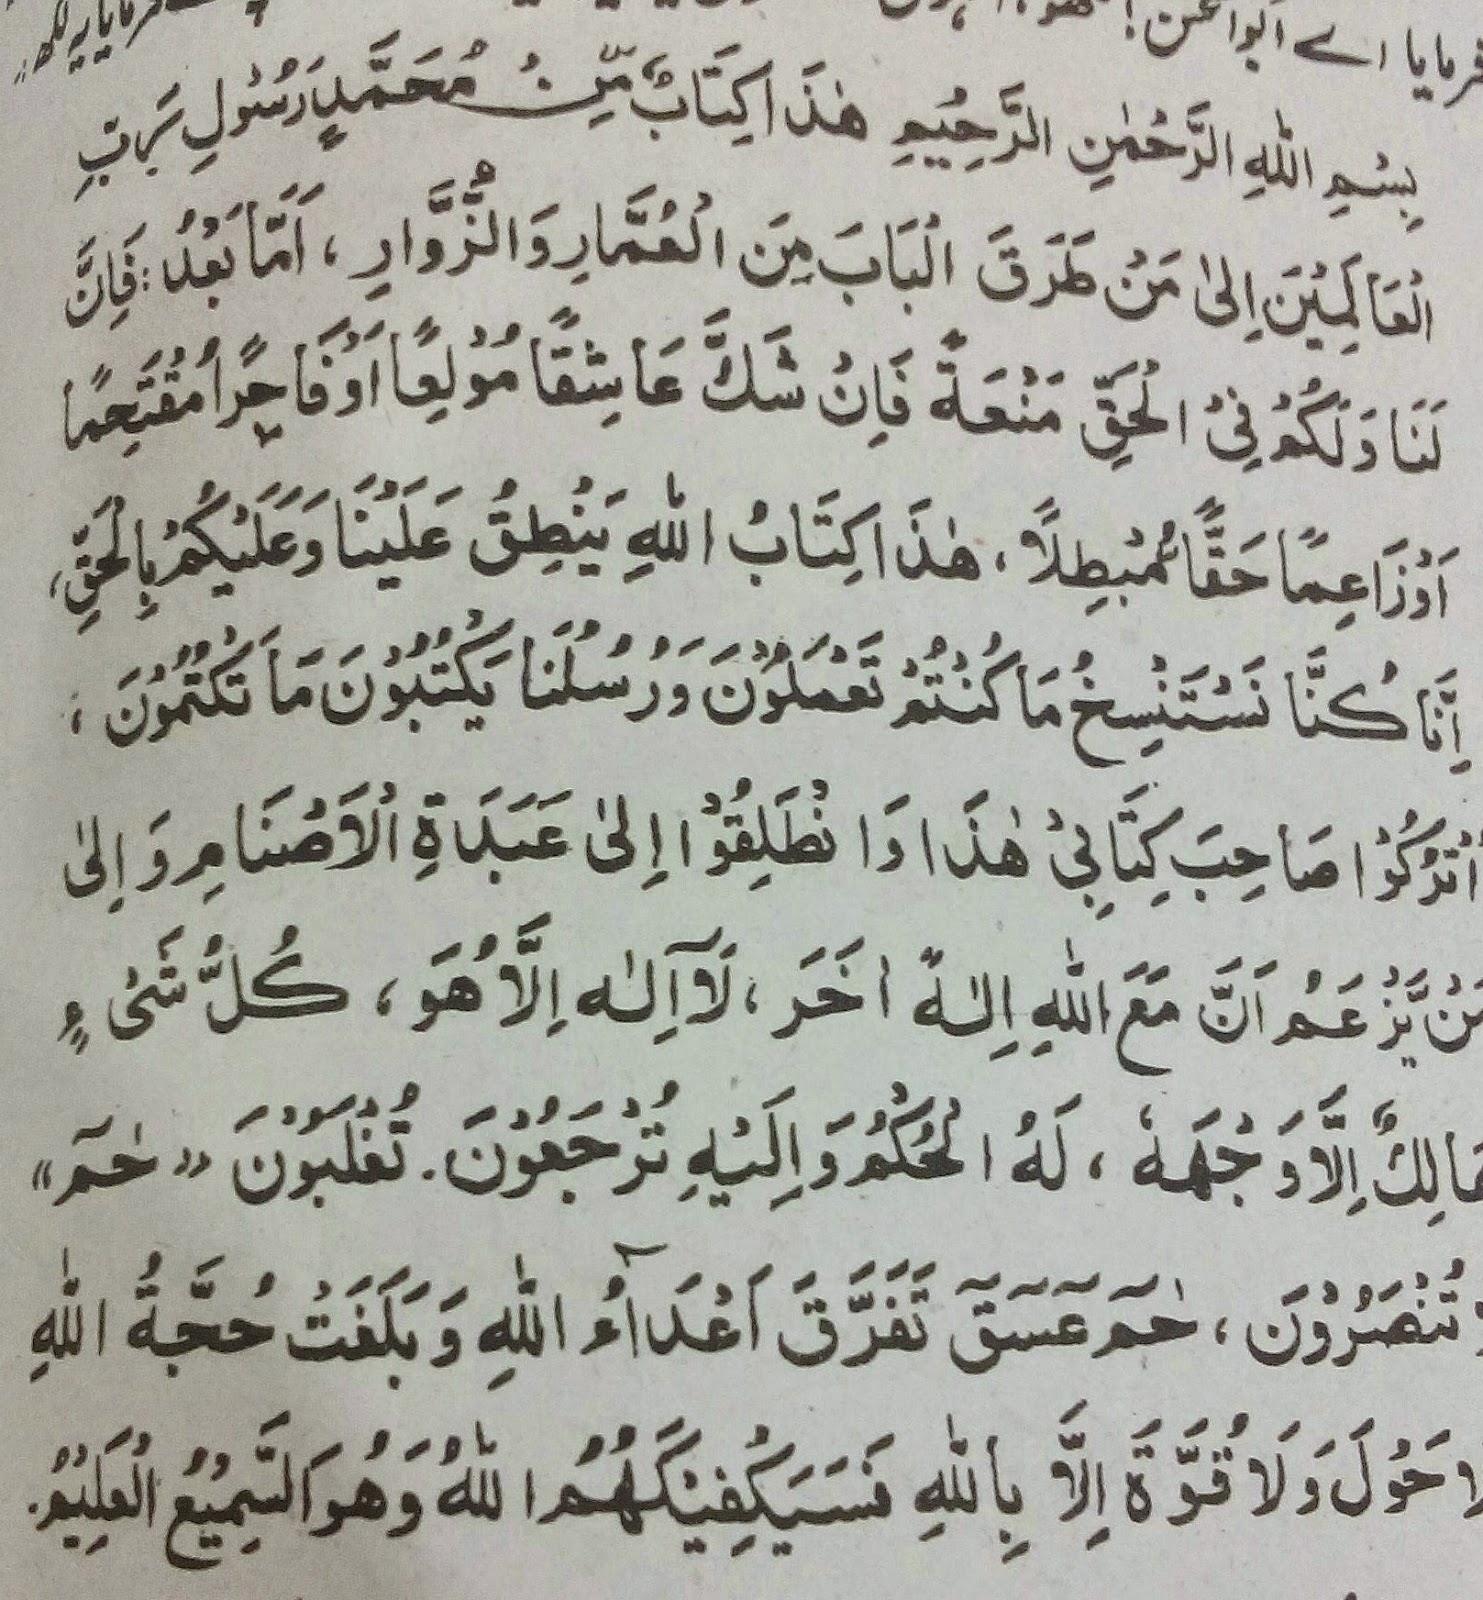 فرمایا اے ابوالحسن!
بِسْمِ اللهِ الرَّحْمٰنِ الرَّحِيْمِ هٰذَا كِتَابٌ مِّنْ مُحَمَّدٍ رَسُوْلِ رَبِّ
الْعَالَمِيْنَ اِلىٰ مَنْ طَرَقَ الْبَابَ مِنَ الْعُمَّارِ وَالزُّوَّارِ، اَمَّا بَعْدُ: فَاِنَّ
لَنَا وَلَكُمْ فِىْ الْحَقِّ مَنْعَةً فَاِنْ شَكَّ عَاشِقًا مُوْلِعًا اَوْفَاجِرًا مُقْتَحِمًا
اَوْزَاعِمًا حَقًّا مُّبْطِلًا، هٰذَا كِتَابُ اللهِ يَنْطِقُ عَلَيْنَا وَعَلَيْكُمْ بِالْحَقِّ،
اِنَّا كُنَّا نَسْتَنْسِخُ مَا كُنْتُمْ تَعْمَلُوْنَ وَرُسُلُنَا يَكْتُبُوْنَ مَا تَكْتُمُوْنَ،
اُتْرُكُوْا صَاحِبَ كِتَابِىْ هٰذَا وَانْطَلِقُوْا اِلىٰ عَبَدَةِ الْاَصْنَامِ وَاِلىٰ
مَنْ يَّزْعَمُ اَنَّ مَعَ اللهِ اِلٰهًا اٰخَرَ، لَآ اِلٰه اِلَّا هُوَ، كُلُّ شَىْءٍ
هَالِكٌ اِلَّا وَجْهَهٗ، لَهُ الْحُكْمُ وَاِلَيْهِ تُرْجَعُوْنَ. تُغْلَبُوْنَ "حٰمٓ"
تُنْصَرُوْنَ، حٰمٓ عٓسٓقٓ تَفَرَّقَ اَعْدَآءُ اللهِ وَبَلَغَتْ حُجَّةُ اللهِ
لَا حَوْلَ وَلَا قُوَّةَ اِلَّا بِاللهِ فَسَيَكْفِيْكَهُمُ اللهُ وَهُوَ السَّمِيْعُ الْعَلِيْمُ.